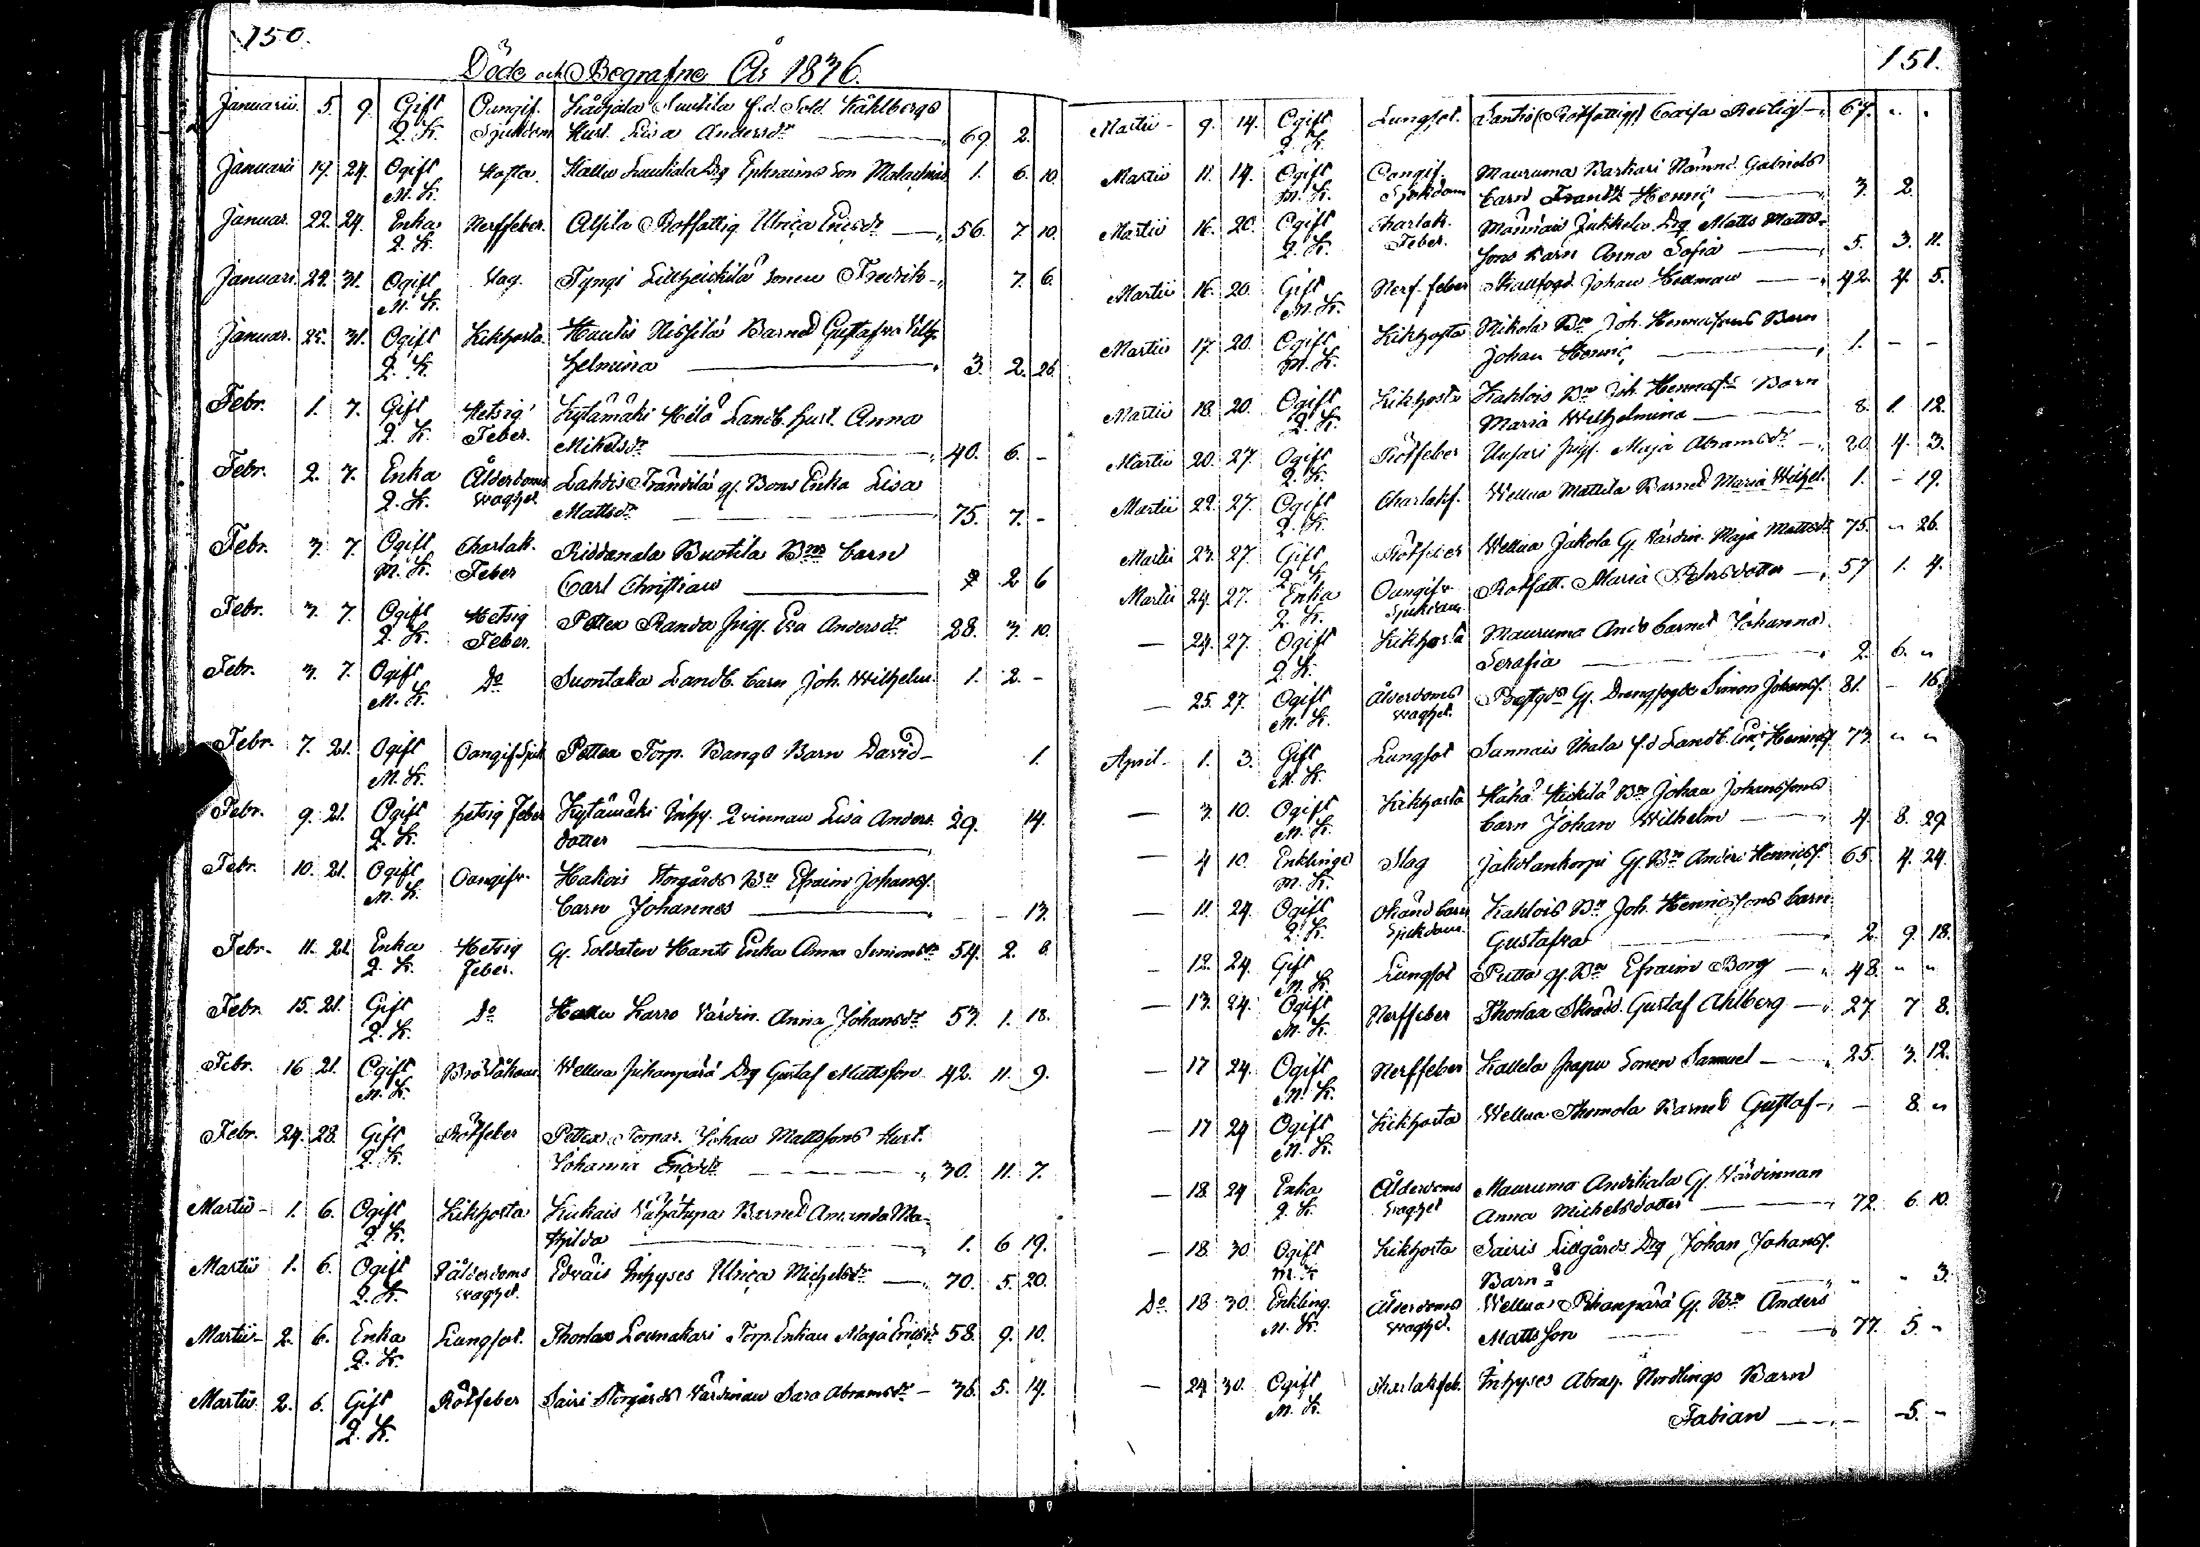 150.
Döde och Begrafne År 1836.
Januarii. 5. 9. Gift Oangif. Suutila f.d. Sold. Kåhlbergs
Q. K. Sjukdom Hust. Lisa Andersdr 69. 2.
Januarii 19. 24. Ogift Hosta. Kallu Drg Ephraims Son 1. 6. 10
M. K.
Januar. 22. 24. Enka Nerffeber. Alfila Rotfattig Ulrica Ericsdr 56. 7. 10.
Q. K.
Januari. 24. 31. Ogift Slag. Tyngi sonen Fredrik 7. 6.
M. K.
Januar. 25. 31. Ogift Kikhosta Barnet Gustafva Vilh-
Q. K. helmina 3. 2. 26
Febr. 1. 7. Gift Hetsig Kylämäki Landb. hust. Anna
Q. K. Feber. Mikelsdr 40. 6. -
Febr. 2. 7. Enka Ålderdoms Lahdis gl. Bons Enka Lisa
Q. K. svaghet. Mattsdr 75. 7. -
Febr. 3. 7. Ogift Charlak. Buotila Bns barn
M. K. Feber Carl Christian 2 6
Febr. 3. 7. Ogift Hetsig Pettea Randa Pig. Eva Andersdr 28. 3. 10.
Q. K. Feber.
Febr. 3. 7. Ogift Do Suontaka Landb. barn Joh. Wilhelm. 1. 2. -
M. K.
Febr. 7. 21. Ogift Oangif. Sjuk Pettea Torp. Bangs Barn David 1.
M. K.
Febr. 9. 21. Ogift hetsig feber Kylämäki Inhy. Qvinnan Lisa Anders 29. 14.
Q. K. dotter
Febr. 10. 21. Ogift Oangifv. Storgårds Bn Efraim Johans.
M. K. barn Johannes - - 13.
Febr. 11. 21. Enka Hetsig Gl. Soldaten Hants Enka Anna Simonsdr 54. 2. 8.
Q. K. Feber.
Febr. 15. 21. Gift Do Karro Värdin. Anna Johansdr 53. 1. 18.
Q. K.
Febr. 16 21. Ogift Wellua Drg Gustaf Mattsson 42. 11. 9.
M. K.
Febr. 24. 28. Gift Rötfeber Pettea Torpar. Johan Mattssons Hust.
Q. K. Johanna Ericsdr 30. 11. 7.
Martii 1. 6. Ogift Kikhosta Barnet Amanda Ma-
Q. K. thilda 1. 6 19.
Martii 1. 6. Ogift Ålderdoms Edväis Inhyses Ulrica Michelsdr 70. 5. 20.
Q. K. svaghet.
Martii 2. 6. Enka Lungsot. Lounakari Torp. Enkan Maja Ericsdr 58. 9. 10.
Q. K.
Martii. 2. 6. Gift Rötfeber Sairi Storgårds Värdinan Sara Abramsdr 36. 5. 14.
Q. K.
151.
Martii 9. 14. Ogift Lungsot. 67. " "
Q. K.
Martii 11. 14. Ogift Oangif. Mauruma Barkari Nämnd. Gabriels
M. K. Sjukdom barn Frantz Henric 3. 2.
Martii 16. 20. Ogift Charlak. Männäis Jukkela Drg Matts Matts-
Q. K. Feber. sons barn Anna Sofia 5. 3. 11.
Martii 16. 20. Gift Nerf feber Johan 42. 4. 5.
M. K.
Martii 17. 20. Ogift Kikhosta Nikola Bn Joh. Henricsons Barn
M. K. Johan Henric 1. - -
Martii 18. 20. Ogift Kikhosta Kahlois Bn Joh. Henricss Barn
Q. K. Maria Wilhelmina 8. 1. 12.
Martii 20. 27. Ogift Rötfeber Pig. Maja Abramsdr 20. 4. 3.
Q. K.
Martii 22. 27. Ogift Charlakf. Wellua Mattila Barnet Maria Wilhel. 1. - 19.
Q. K.
Martii 23. 27. Gift Rötfeber Wellua Jakola Gl. Värdin. Maja Mattsdr 75. " 26.
Q. K.
Martii 24. 27. Enka Oangifv Rotfatt. Maria 57 1. 4.
Q. K. Sjukdom
— 24. 27. Ogift Kikhosta Mauruma barnet Johanna
Q. K. Serafia 2. 6. "
— 25. 27. Ogift Ålderdoms Gl. Drengfogde Simon Johanss. 81. - 16
M. K. svaghet.
April 1. 3. Gift Lungsot Sannais f.d. Landb. Eric Henrics. 73. " "
M. K.
— 3. 10. Ogift Kikhosta Bn Johan Johanssons
M. K. barn Johan Wilhelm 4. 8. 29
— 4 10. Enkling Slag Gl. Bn Anders Henricss. 65. 4. 24.
M. K.
— 11. 24. Ogift Okänd barn Kahlois Bn Joh. Henricsons barn
Q. K. Sjukdom. Gustafva 2. 9. 18.
— 12. 24. Gift Lungsot gl. Bn Efraim Borg 48. " "
M. K.
— 13. 24. Ogift Nerffeber Gustaf Ahlberg 27. 7 8.
M. K.
— 17 24. Ogift Nerffeber Kallela Sonen Samuel 25. 3. 12.
M. K.
— 17 24 Ogift Kikhosta Wellua Barnet Gustaf - 8. "
M. K.
— 18. 24 Enka Ålderdoms Mauruma Gl. Värdinnan
Q. K. svaghet Anna Michelsdotter 72. 6. 10.
— 18 30 Ogift Kikhosta Sairis Lillgårds Drg Johan Johanss.
M. K. Barn " " 3.
Do 18. 30. Enkling. Ålderdoms Wellua Gl. Bn Anders
M. K. svaghet. Mattsson 77. 5. "
— 24 30. Ogift Charlakfeb. Inhyses Nordlings Barn
M. K. Fabian - 5. -